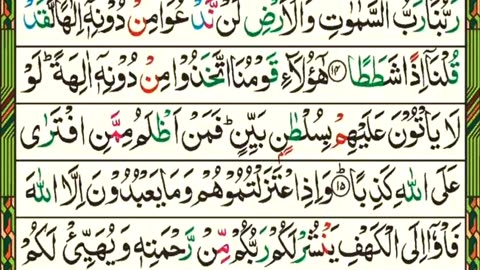 رَبُّنَا رَبُّ السَّمٰوٰتِ وَالْاَرْضِ لَنْ نَّدْعُوَا۟ مِنْ دُوْنِهٖۤ اِلٰهًا لَّقَدْ
قُلْنَاۤ اِذًا شَطَطًا ﴿۱۴﴾ هٰۤؤُلَآءِ قَوْمُنَا اتَّخَذُوْا مِنْ دُوْنِهٖۤ اٰلِهَةً ؕ لَوْ
لَا يَاْتُوْنَ عَلَيْهِمْ بِسُلْطٰنٍۭ بَيِّنٍ ؕ فَمَنْ اَظْلَمُ مِمَّنِ افْتَرٰى
عَلَى اللّٰهِ كَذِبًا ؕ ﴿۱۵﴾ وَاِذِ اعْتَزَلْتُمُوْهُمْ وَمَا يَعْبُدُوْنَ اِلَّا اللّٰهَ
فَاْوٗۤا اِلَى الْكَهْفِ يَنْشُرْ لَكُمْ رَبُّكُمْ مِّنْ رَّحْمَتِهٖ وَيُهَيِّئْ لَكُمْ